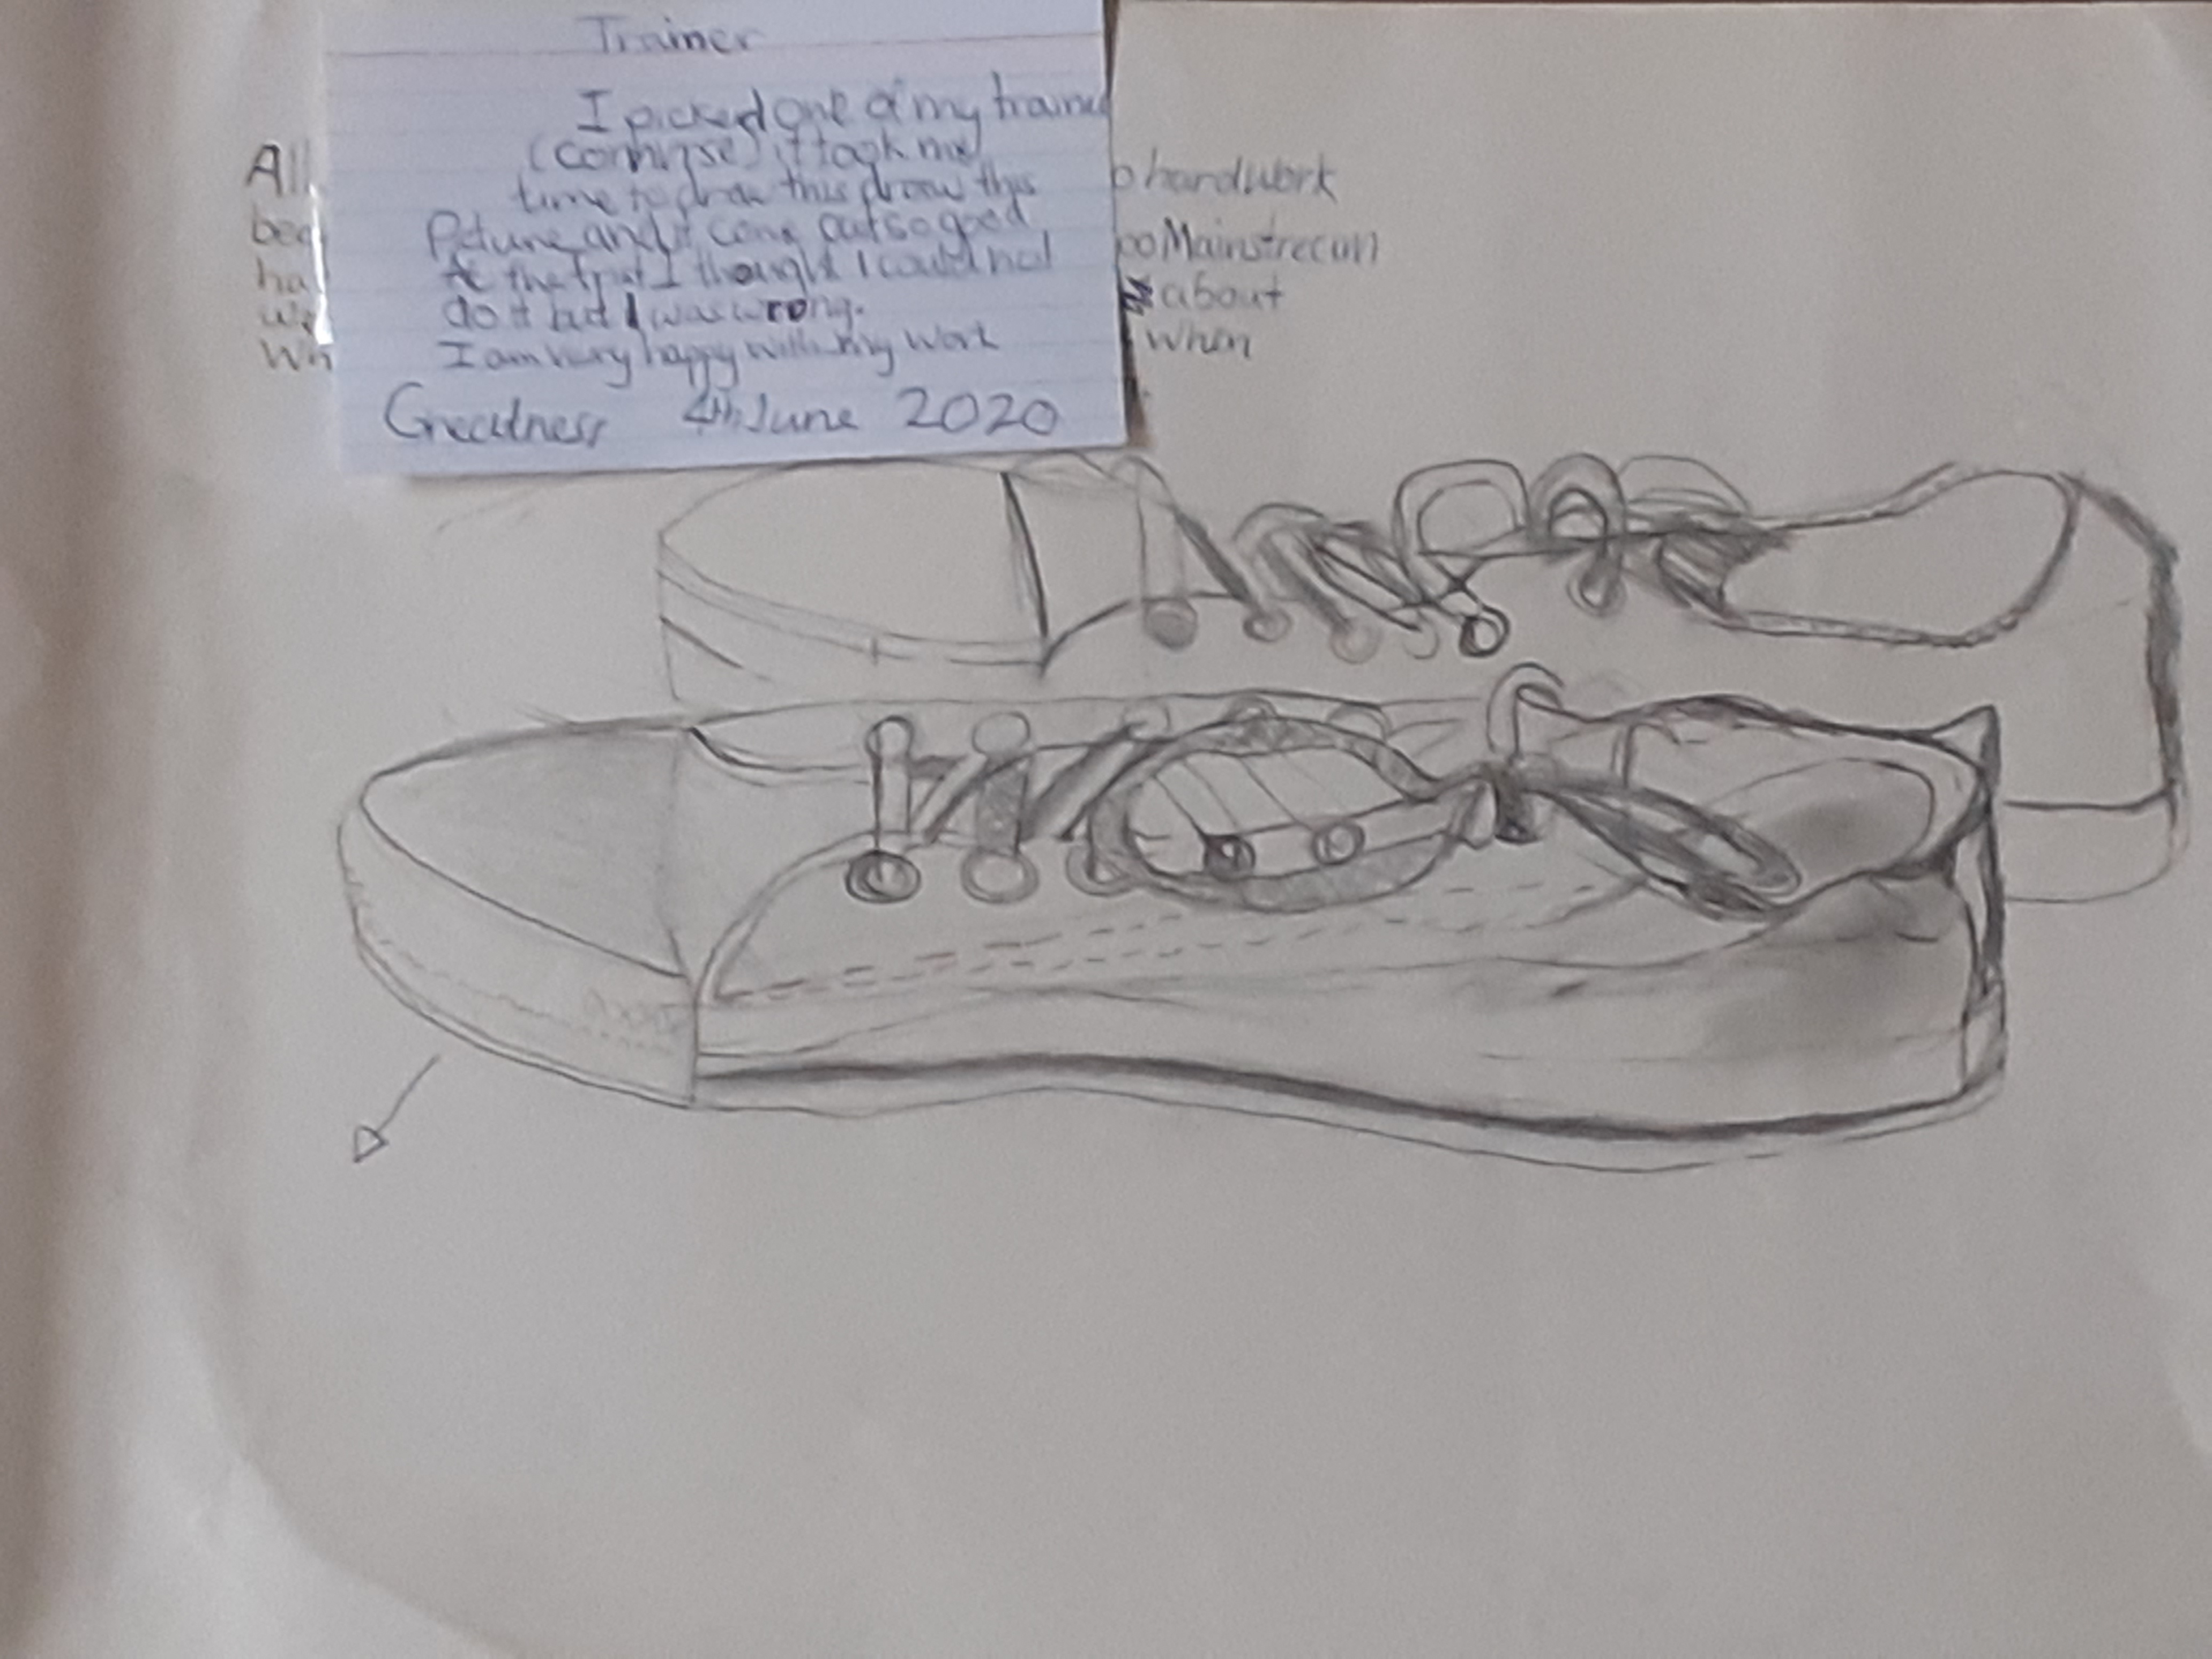 Trainer
I picked one of my trainer
(Convinse) it took me
time to draw this draw this
Picture and it come out so good
At the frist I thought I could not
do it but I was wrong.
I am very happy with my work
Greatness 4th June 2020
All
hardwork
bec
Mainstream
ha
about
we
Wh
when